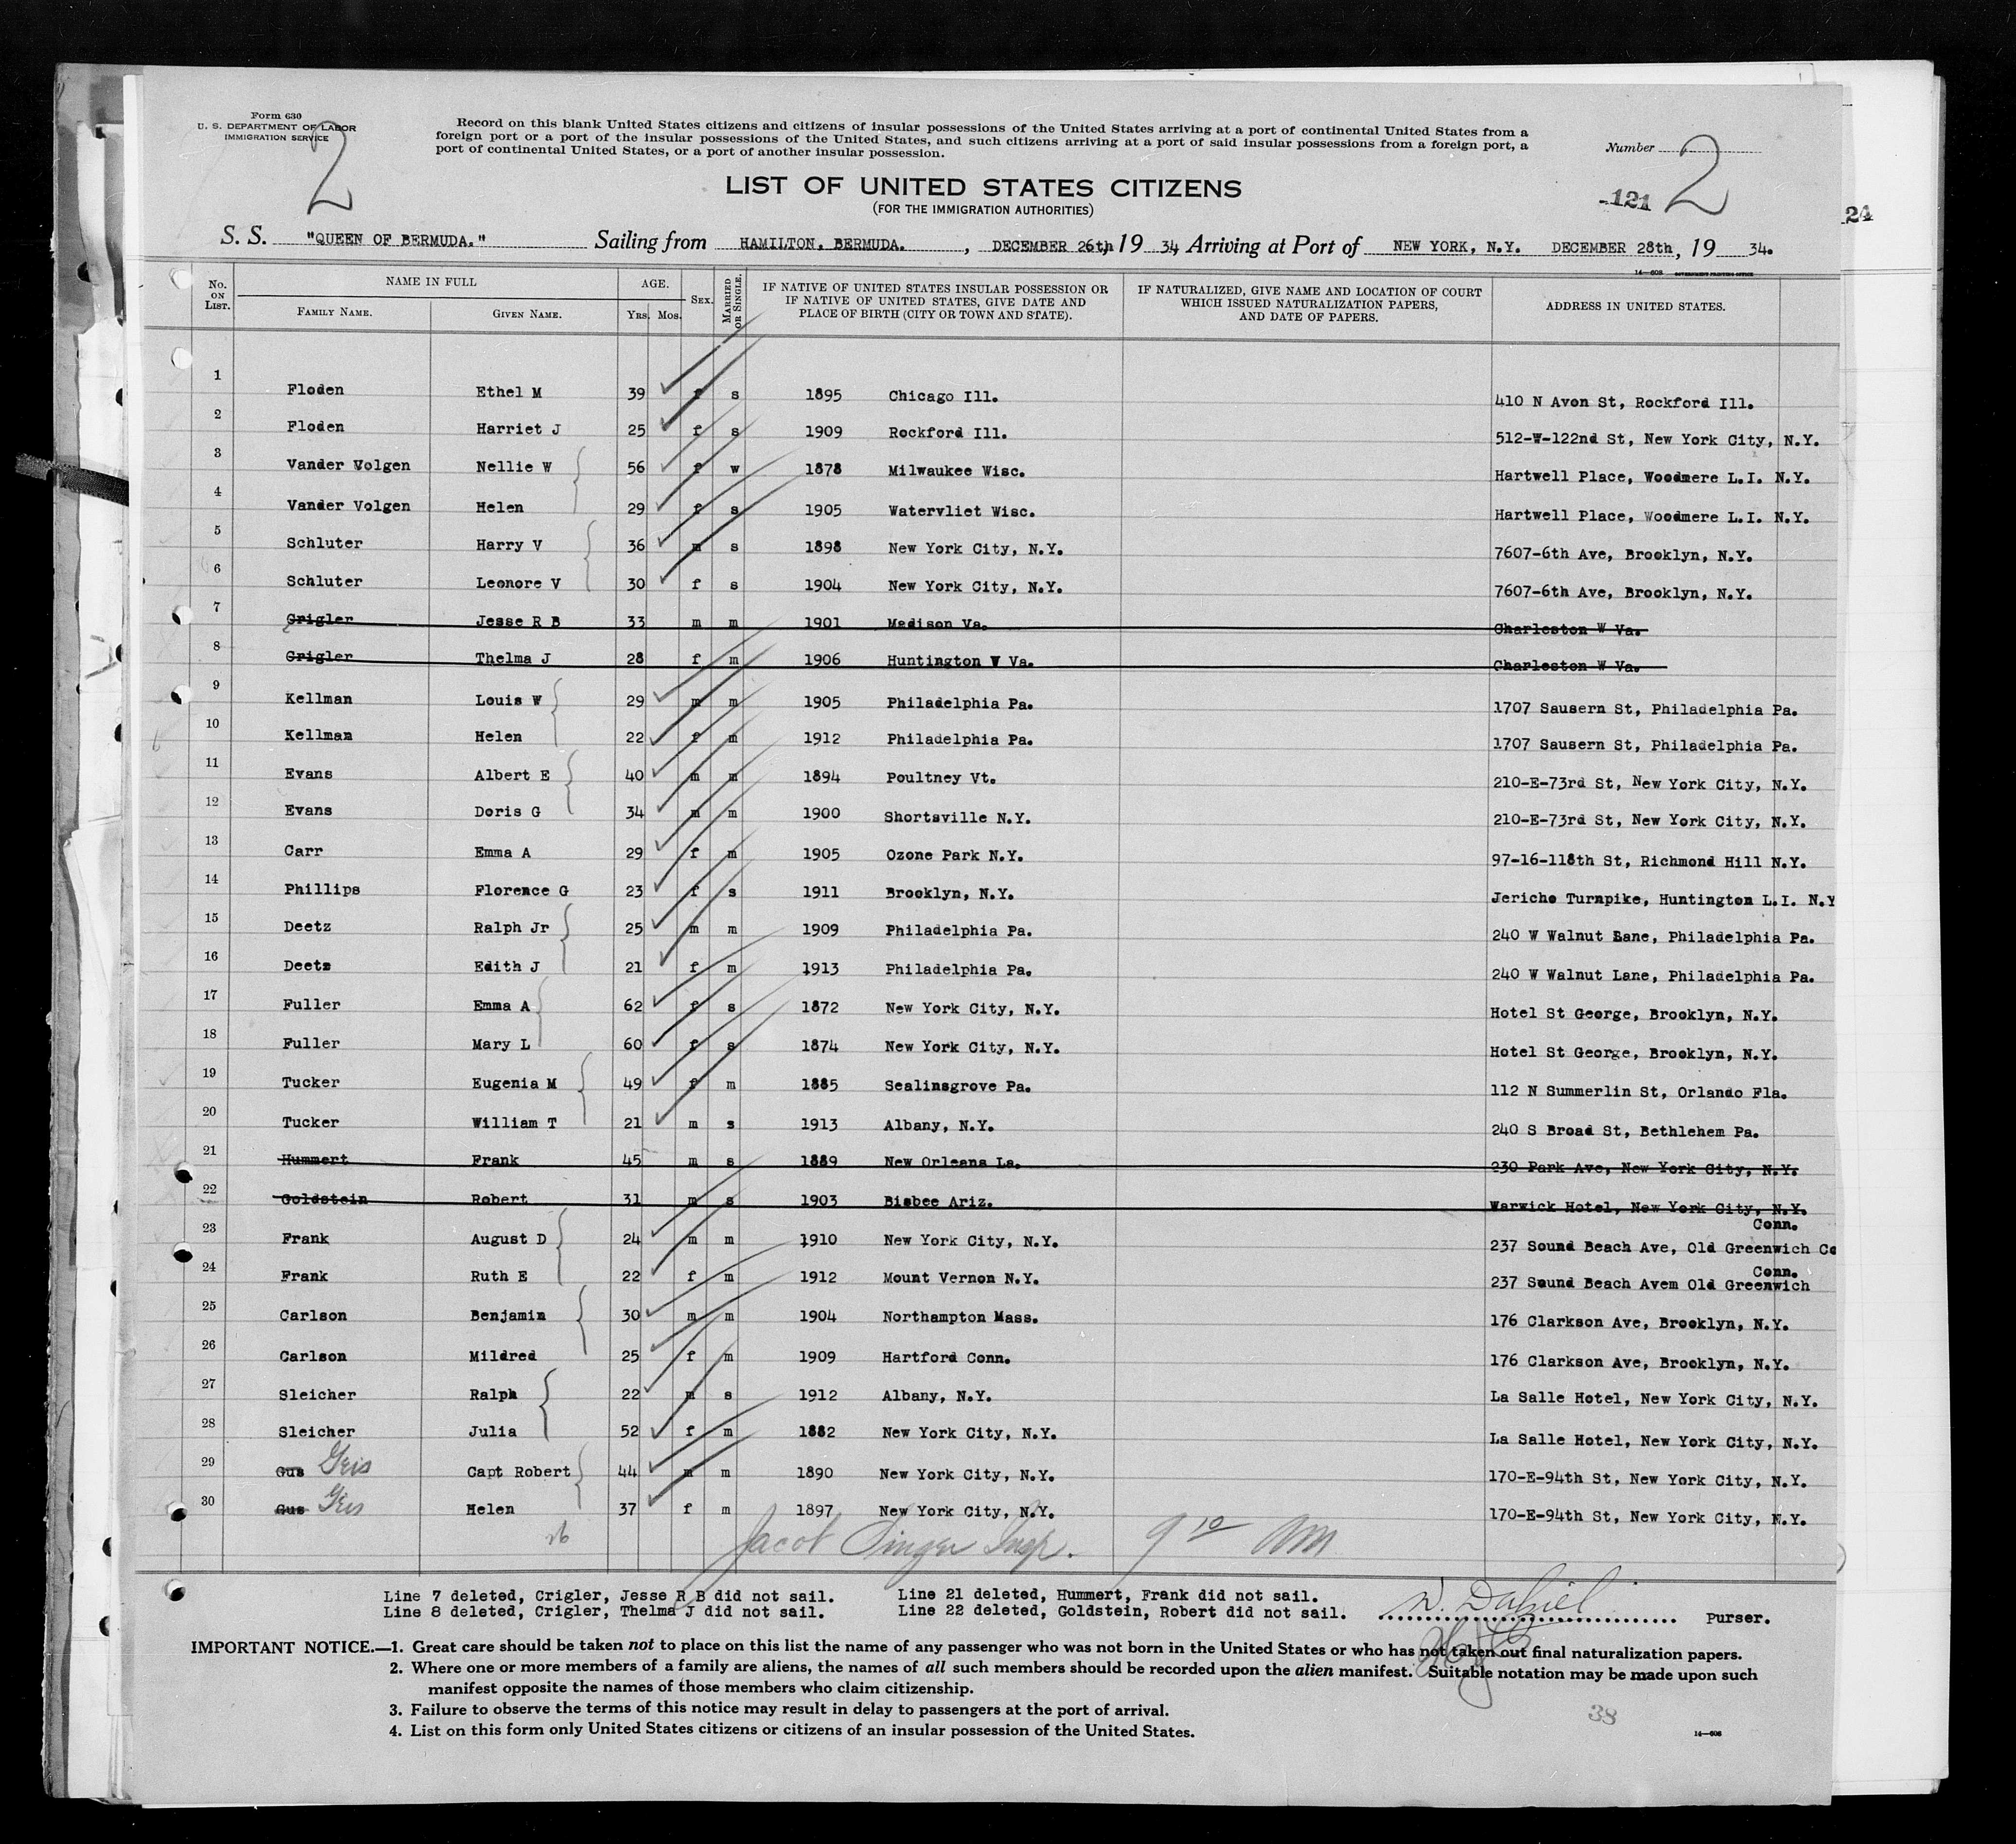 Form 630
U. S. DEPARTMENT OF LABOR
IMMIGRATION SERVICE
2
Record on this blank United States citizens and citizens of insular possessions of the United States arriving at a port of continental United States from a
foreign port or a port of the insular possessions of the United States, and such citizens arriving at a port of said insular possessions from a foreign port, a
port of continental United States, or a port of another insular possession.
Number 2
LIST OF UNITED STATES CITIZENS
(FOR THE IMMIGRATION AUTHORITIES)
121
24
S. S. "QUEEN OF BERMUDA." Sailing from HAMILTON, BERMUDA. , DECEMBER 26th, 19 34, Arriving at Port of NEW YORK, N.Y. DECEMBER 28th, 19 34.
14—608 GOVERNMENT PRINTING OFFICE
No. ON LIST. NAME IN FULL FAMILY NAME. GIVEN NAME. AGE. Yrs. Mos. Sex. MARRIED OR SINGLE. IF NATIVE OF UNITED STATES INSULAR POSSESSION OR IF NATIVE OF UNITED STATES, GIVE DATE AND PLACE OF BIRTH (CITY OR TOWN AND STATE). IF NATURALIZED, GIVE NAME AND LOCATION OF COURT WHICH ISSUED NATURALIZATION PAPERS, AND DATE OF PAPERS. ADDRESS IN UNITED STATES.
1 Floden Ethel M 39 f s 1895 Chicago Ill. 410 N Avon St, Rockford Ill.
2 Floden Harriet J 25 f s 1909 Rockford Ill. 512-W-122nd St, New York City, N.Y.
3 Vander Volgen Nellie W 56 f w 1878 Milwaukee Wisc. Hartwell Place, Woodmere L.I. N.Y.
4 Vander Volgen Helen 29 f s 1905 Watervliet Wisc. Hartwell Place, Woodmere L.I. N.Y.
5 Schluter Harry V 36 m s 1898 New York City, N.Y. 7607-6th Ave, Brooklyn, N.Y.
6 Schluter Leonore V 30 f s 1904 New York City, N.Y. 7607-6th Ave, Brooklyn, N.Y.
7 Crigler Jesse R B 33 m m 1901 Madison Va. Charleston W Va.
8 Crigler Thelma J 28 f m 1906 Huntington W Va. Charleston W Va.
9 Kellman Louis W 29 m m 1905 Philadelphia Pa. 1707 Sausern St, Philadelphia Pa.
10 Kellman Helen 22 f m 1912 Philadelphia Pa. 1707 Sausern St, Philadelphia Pa.
11 Evans Albert E 40 m m 1894 Poultney Vt. 210-E-73rd St, New York City, N.Y.
12 Evans Doris G 34 m m 1900 Shortsville N.Y. 210-E-73rd St, New York City, N.Y.
13 Carr Emma A 29 f m 1905 Ozone Park N.Y. 97-16-118th St, Richmond Hill N.Y.
14 Phillips Florence G 23 f s 1911 Brooklyn, N.Y. Jericho Turnpike, Huntington L.I. N.Y
15 Deetz Ralph Jr 25 m m 1909 Philadelphia Pa. 240 W Walnut Lane, Philadelphia Pa.
16 Deetz Edith J 21 f m 1913 Philadelphia Pa. 240 W Walnut Lane, Philadelphia Pa.
17 Fuller Emma A 62 f s 1872 New York City, N.Y. Hotel St George, Brooklyn, N.Y.
18 Fuller Mary L 60 f s 1874 New York City, N.Y. Hotel St George, Brooklyn, N.Y.
19 Tucker Eugenia M 49 f m 1885 Sealinsgrove Pa. 112 N Summerlin St, Orlando Fla.
20 Tucker William T 21 m s 1913 Albany, N.Y. 240 S Broad St, Bethlehem Pa.
21 Hummert Frank 45 m s 1889 New Orleans La. 230 Park Ave, New York City, N.Y.
22 Goldstein Robert 31 m s 1903 Bisbee Ariz. Warwick Hotel, New York City, N.Y.
Conn.
23 Frank August D 24 m m 1910 New York City, N.Y. 237 Sound Beach Ave, Old Greenwich Co
Conn.
24 Frank Ruth E 22 f m 1912 Mount Vernon N.Y. 237 Sound Beach Avem Old Greenwich
25 Carlson Benjamin 30 m m 1904 Northampton Mass. 176 Clarkson Ave, Brooklyn, N.Y.
26 Carlson Mildred 25 f m 1909 Hartford Conn. 176 Clarkson Ave, Brooklyn, N.Y.
27 Sleicher Ralph 22 m s 1912 Albany, N.Y. La Salle Hotel, New York City, N.Y.
28 Sleicher Julia 52 f m 1882 New York City, N.Y. La Salle Hotel, New York City, N.Y.
29 Gus Geis Capt Robert 44 m m 1890 New York City, N.Y. 170-E-94th St, New York City, N.Y.
30 Gus Geis Helen 37 f m 1897 New York City, N.Y. 170-E-94th St, New York City, N.Y.
26 Jacob Singer Insp. 9 10 AM
Line 7 deleted, Crigler, Jesse R B did not sail. Line 21 deleted, Hummert, Frank did not sail.
Line 8 deleted, Crigler, Thelma J did not sail. Line 22 deleted, Goldstein, Robert did not sail. W. Dalziel Purser.
IMPORTANT NOTICE.—1. Great care should be taken not to place on this list the name of any passenger who was not born in the United States or who has not taken out final naturalization papers.
2. Where one or more members of a family are aliens, the names of all such members should be recorded upon the alien manifest. Suitable notation may be made upon such
manifest opposite the names of those members who claim citizenship.
3. Failure to observe the terms of this notice may result in delay to passengers at the port of arrival.
4. List on this form only United States citizens or citizens of an insular possession of the United States.
38
14—608